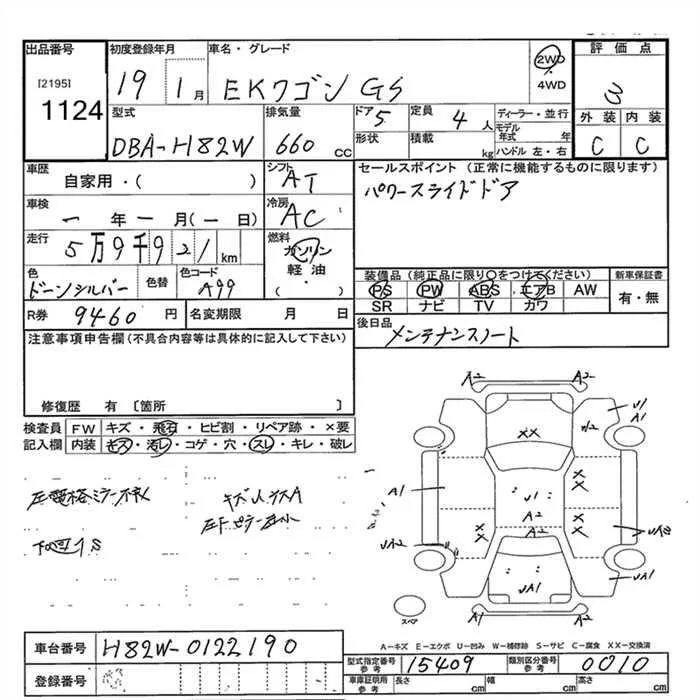 出品番号 初度登録年月 車名・グレード 評価点
[2195] 1124
19 1月 EKワゴン GS 2WD 4WD 3
型式 排気量 ドア 5 定員 4人 ディーラー・並行 外装 内装
DBA-H82W 660cc 形状 積載 kg モデル年式 年 ハンドル 左・右 C C
車歴 シフト AT セールスポイント (正常に機能するものに限ります)
自家用・( ) パワースライドドア
車検 冷房 AC
一年一月(一日)
走行 燃料
5万9千9 21km ガソリン 軽油・( )
色 色替 色コード 装備品(純正品に限り○をつけてください) 新車保証書
ドーンシルバー A99 PS PW ABS エアB AW 有・無
SR ナビ TV カワ
R券 9460円 名変期限 月 日 後日品 メンテナンスノート
注意事項申告欄(不具合内容等は具体的に記入して下さい)
修復歴 有〔箇所 〕
検査員 FW キズ・飛石・ヒビ割・リペア跡・×要
記入欄 内装 キズ・汚レ・コゲ・穴・スレ・キレ・破レ
下回りS
A2 A2
U1 A1
XX
A1 U1 XX
A2 A2 XX XX
UA2
UA1 UA1
スペア
A-キズ E-エクボ U-凹み W-補修跡 S-サビ C-腐食 XX-交換済
車台番号 H82W-0122190
登録番号
型式指定番号 参考 15409 類別区分番号 参考 0010
車庫証明用 参考 長さ cm 幅 cm 高さ cm